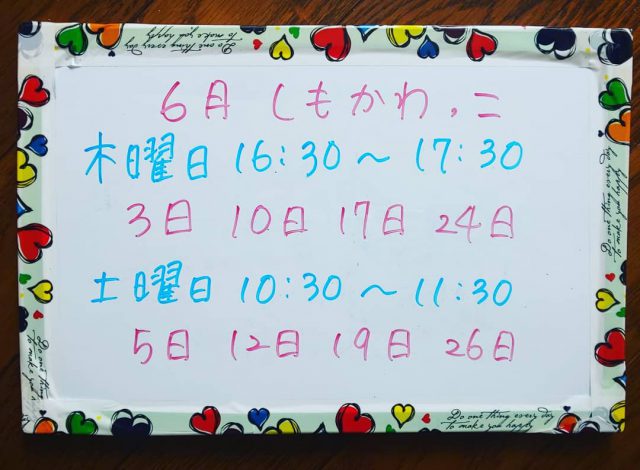 6月 しもかわ.ニ
木曜日 16:30〜17:30
3日 10日 17日 24日
土曜日 10:30〜11:30
5日 12日 19日 26日
Do one thing every day
to make you happy
Do one thing every day
to make you happy
Do one thing every day
to make you happy
Do one thing every day
to make you happy